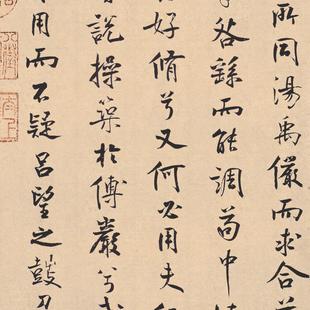 所同湯禹儼而求合兮
咎繇而能調苟中情
好脩兮又何必用夫行
說操築於傅巖兮武
用而不疑呂望之鼓刀